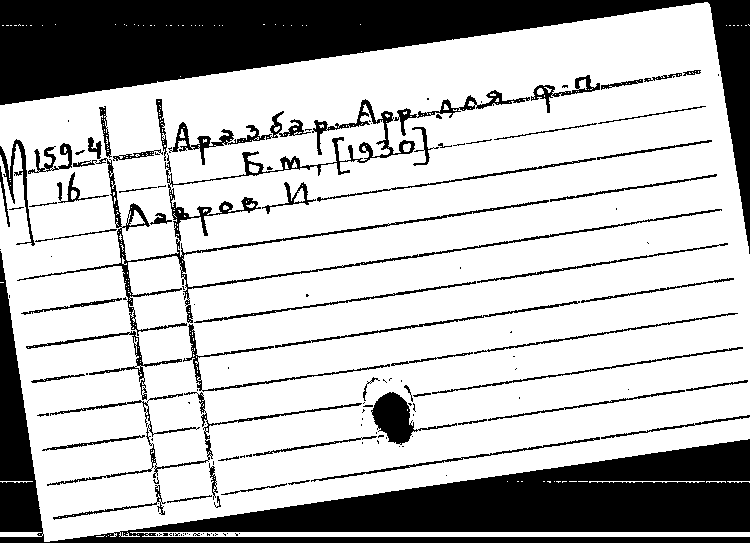 М 159-4
16
Аразбар. Арр. для ф-п.
Б. м., [1930].
Лавров, И.